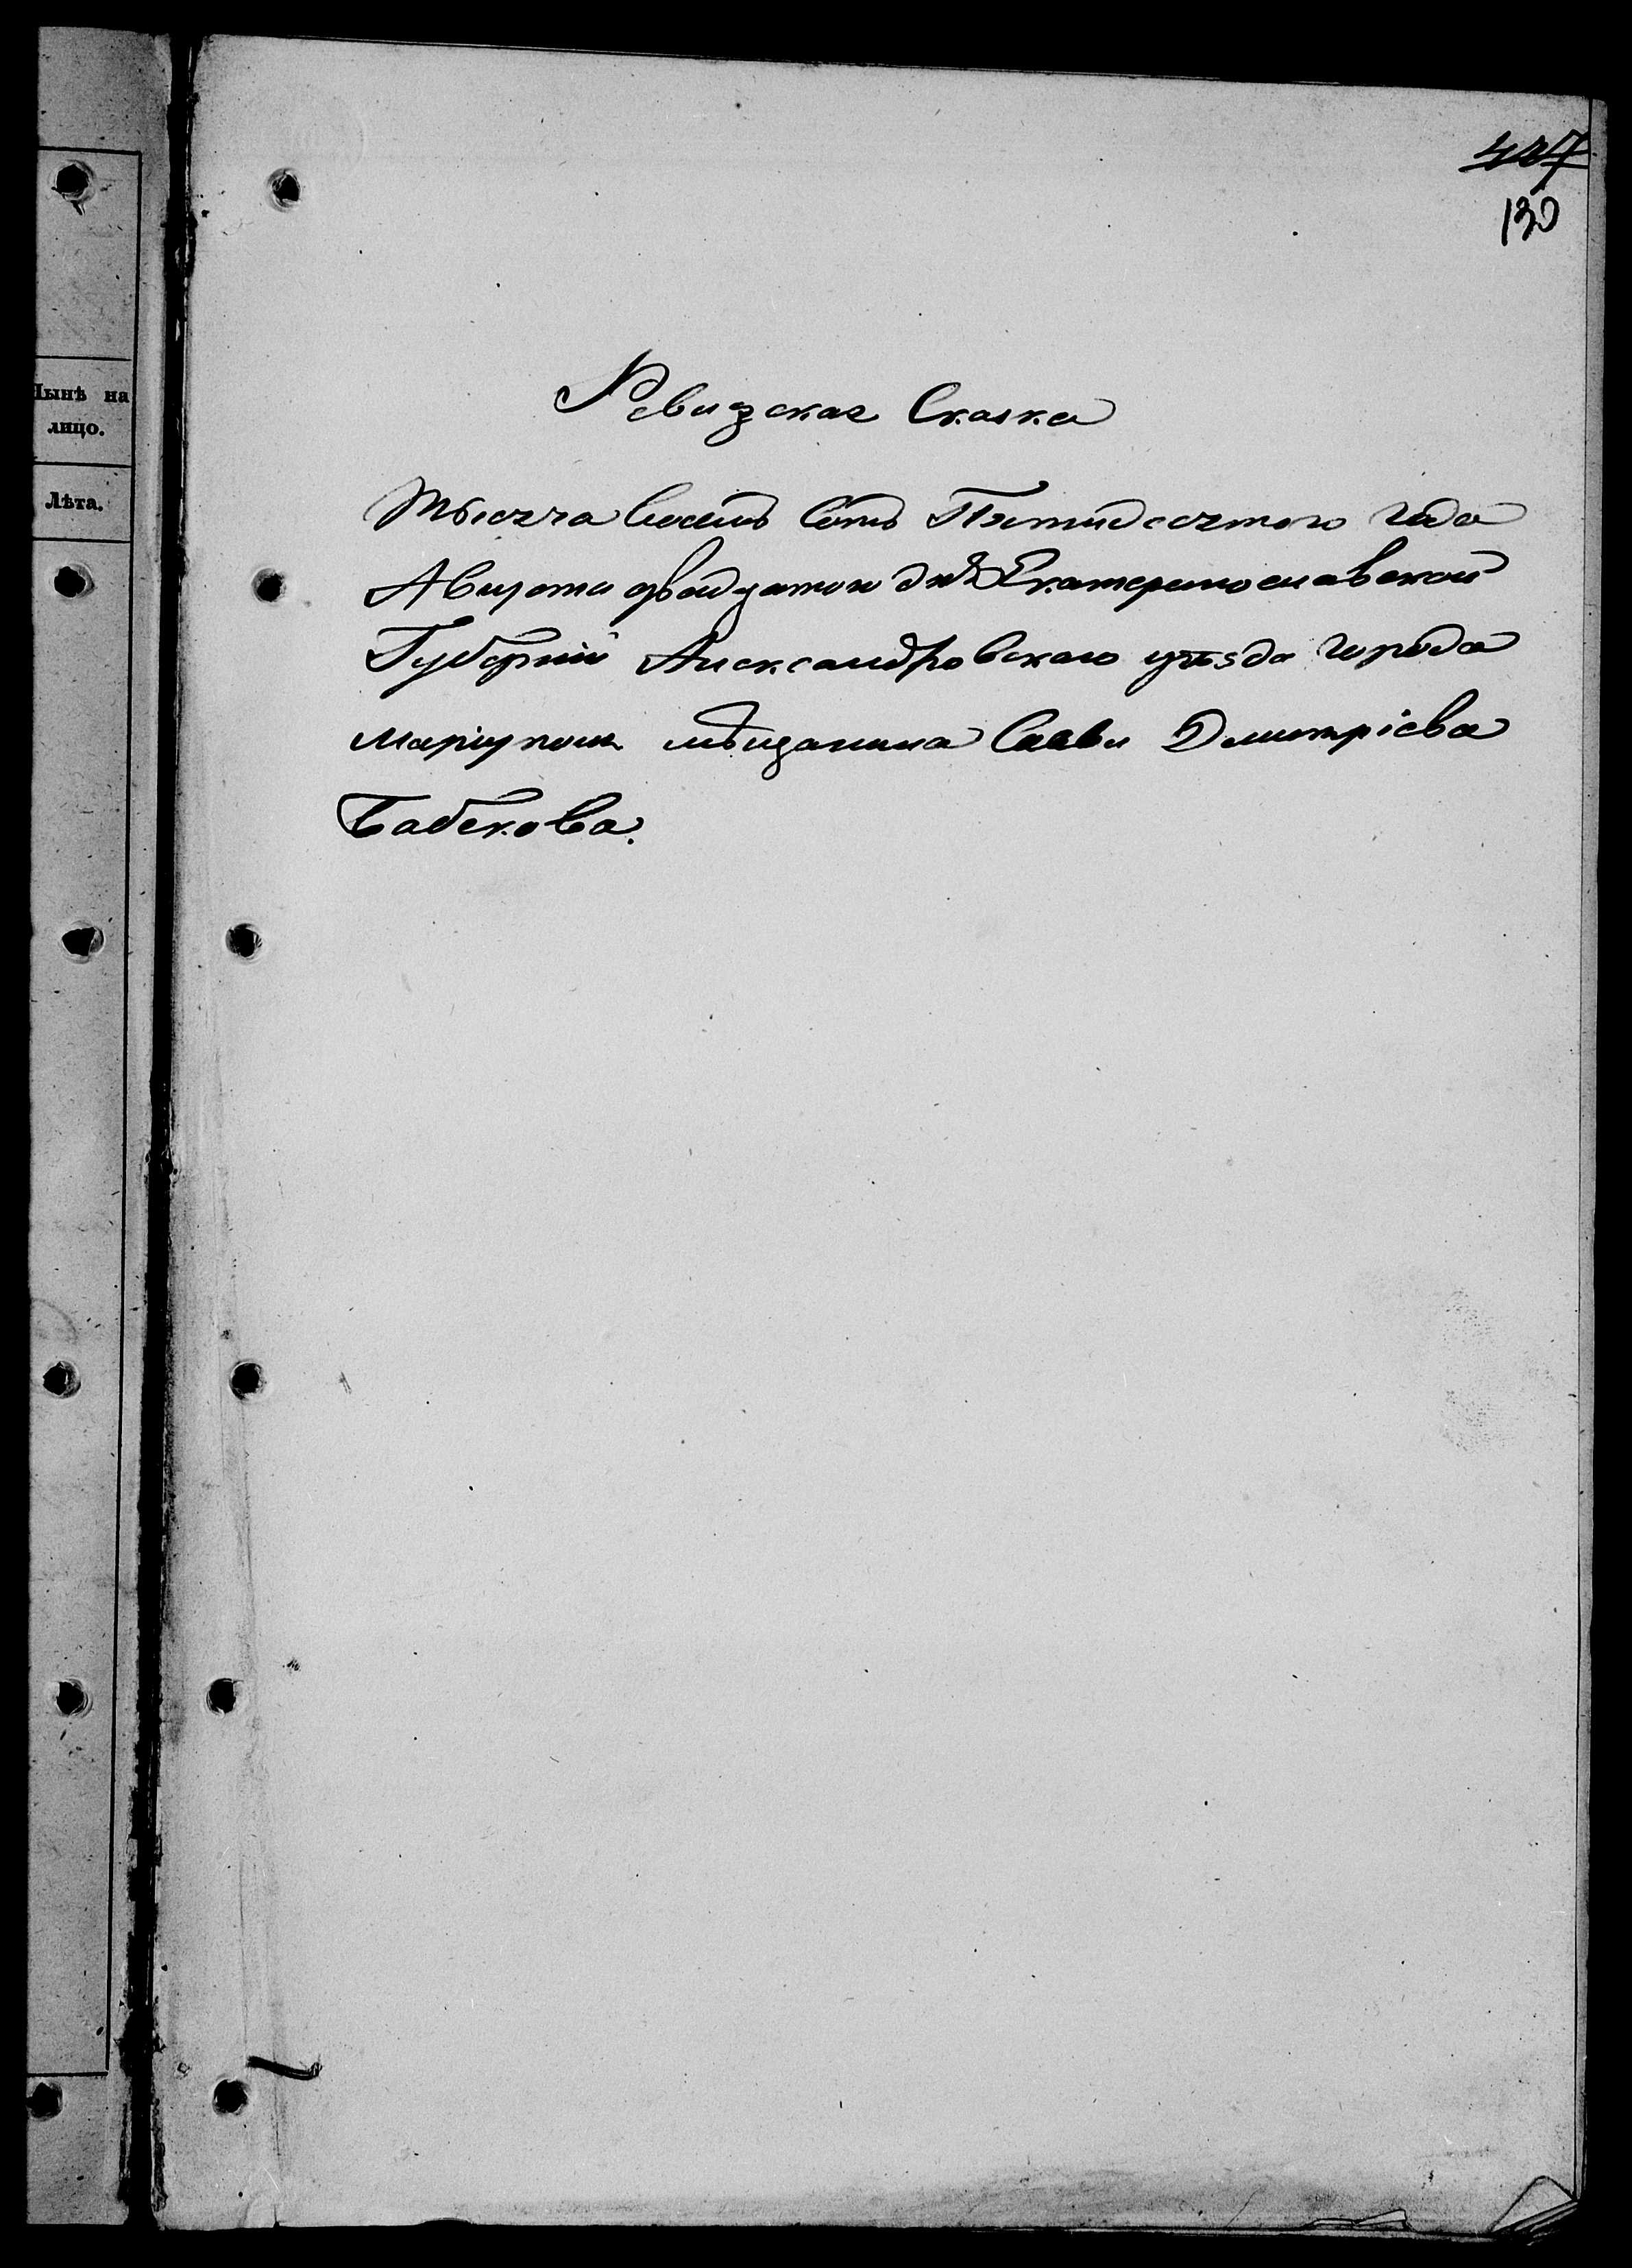 130
Нынѣ на
лицо.
Лѣта.
Ревизская Сказка
Тысяча восемь сотъ Пятидесятого года
Августа двадцатого дня Екатеринославской
Губерніи Александровского уѣзда города
Маріуполя мѣщанина Саввы Дмитріева
Бабекова.